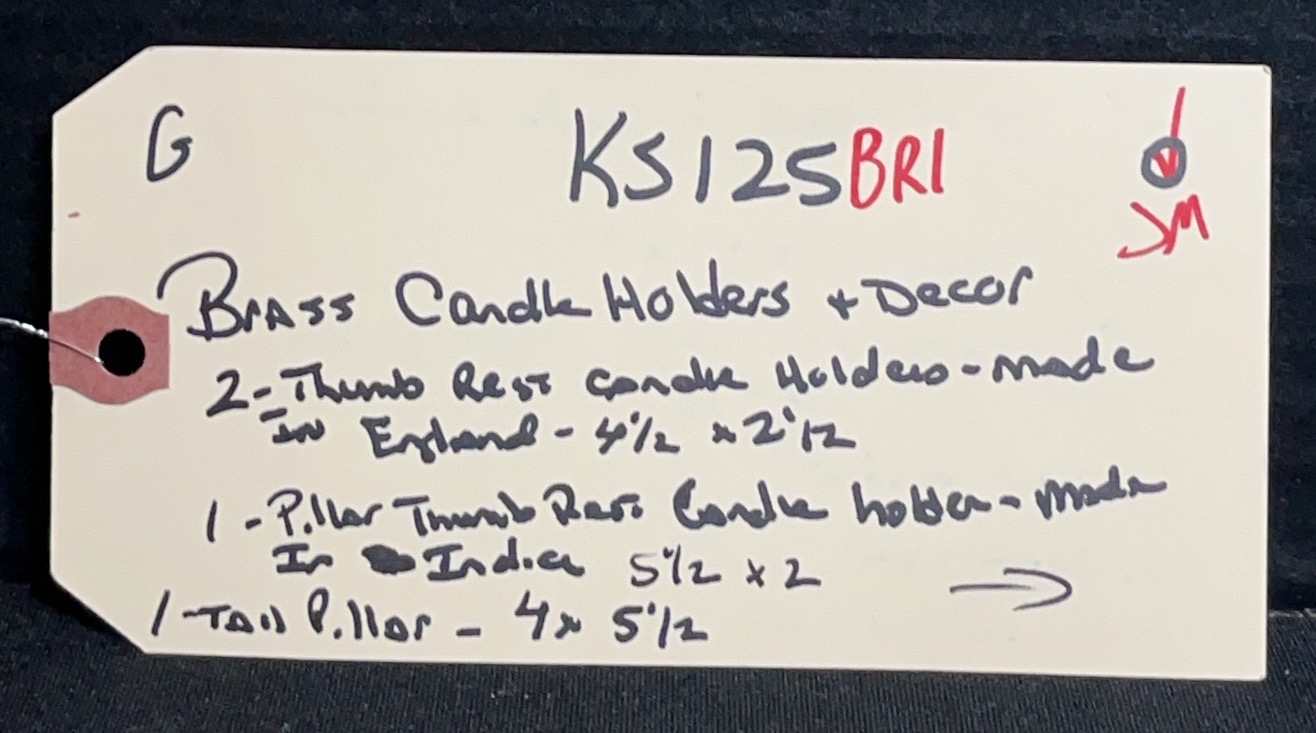 G
KS125BR1
JM
Brass Candle Holders + Decor
2-Thumb Rest Candle Holders - made
in England - 4 1/2 x 2 1/2
1 - Pillar Thumb Rest Candle holder - made
In India 5 1/2 x 2
1-Tall Pillar - 4 x 5 1/2